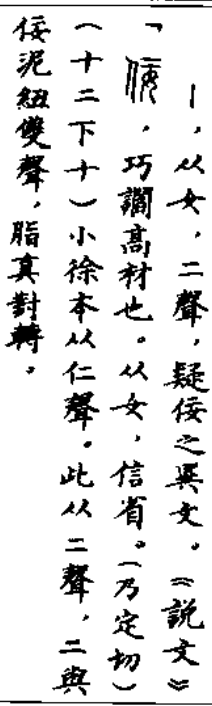 —，从女，二聲，疑佞之異文。《説文》
「佞，巧讇高材也。从女，信省。(乃定切)
(十二下十)小徐本从仁聲。此从二聲，二與
佞泥紐雙聲，脂真對轉。